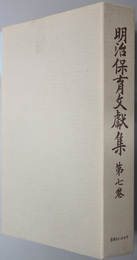 明治保育文獻集 第七卷